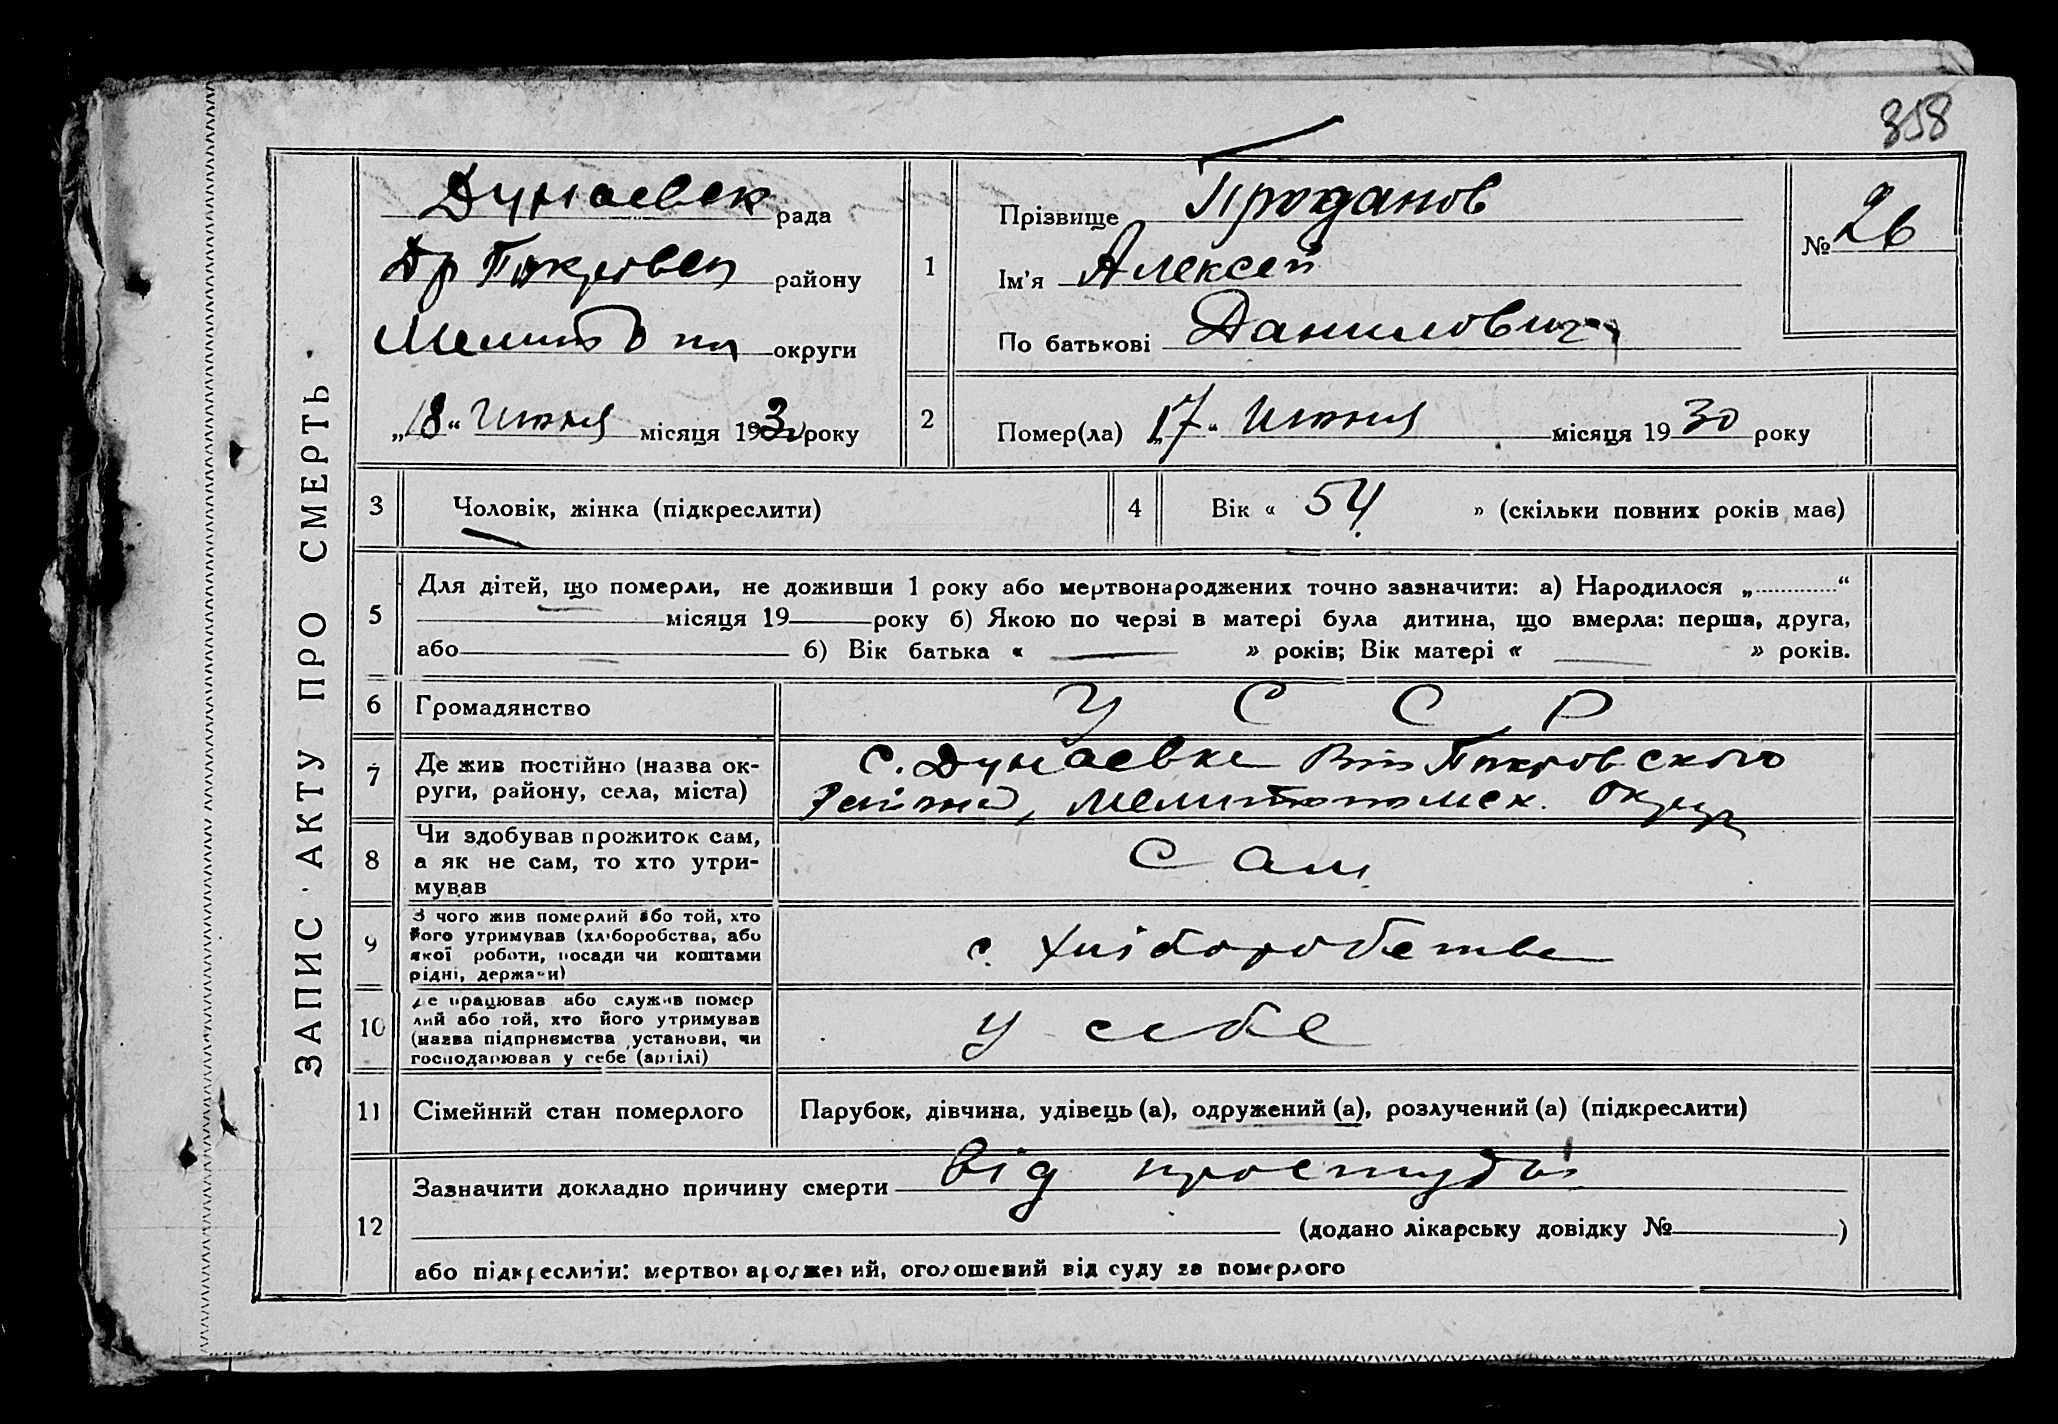 358
ЗАПИС АКТУ ПРО СМЕРТЬ
Дунаевск рада
Покровск району
Мелитоп округи
„18“ Июня місяця 1930 року
1
Прізвище Проданов
Ім'я Алексей
По батькові Данилович
№ 26
2
Помер(ла) „17“ Июня місяця 1930 року
3 Чоловік, жінка (підкреслити)
4 Вік « 54 » (скільки повних років має)
5
Для дітей, що померли, не доживши 1 року або мертвонароджених точно зазначити: а) Народилося „ “
місяця 19 року б) Якою по черзі в матері була дитина, що вмерла: перша, друга,
або б) Вік батька « — » років; Вік матері « — » років.
6 Громадянство У С С Р
7
Де жив постійно (назва ок-
руги, району, села, міста)
с. Дунаевке Покровского
Району, Мелитопольск. Округ
8
Чи здобував прожиток сам,
а як не сам, то хто утри-
мував
Сам
9
З чого жив померлий або той, хто
його утримував (хліборобства, або
якої роботи, посади чи коштами
рідні, держави)
с. хліборобства
10
Де працював або служив помер
лий або той, хто його утримував
(назва підприємства установи, чи
господарював у себе (артілі)
у себе
11 Сімейний стан померлого Парубок, дівчина, удівець (а), одружений (а), розлучений (а) (підкреслити)
12
Зазначити докладно причину смерти від простуды
(додано лікарську довідку № )
або підкреслити: мертвонароджений, оголошений від суду за померлого